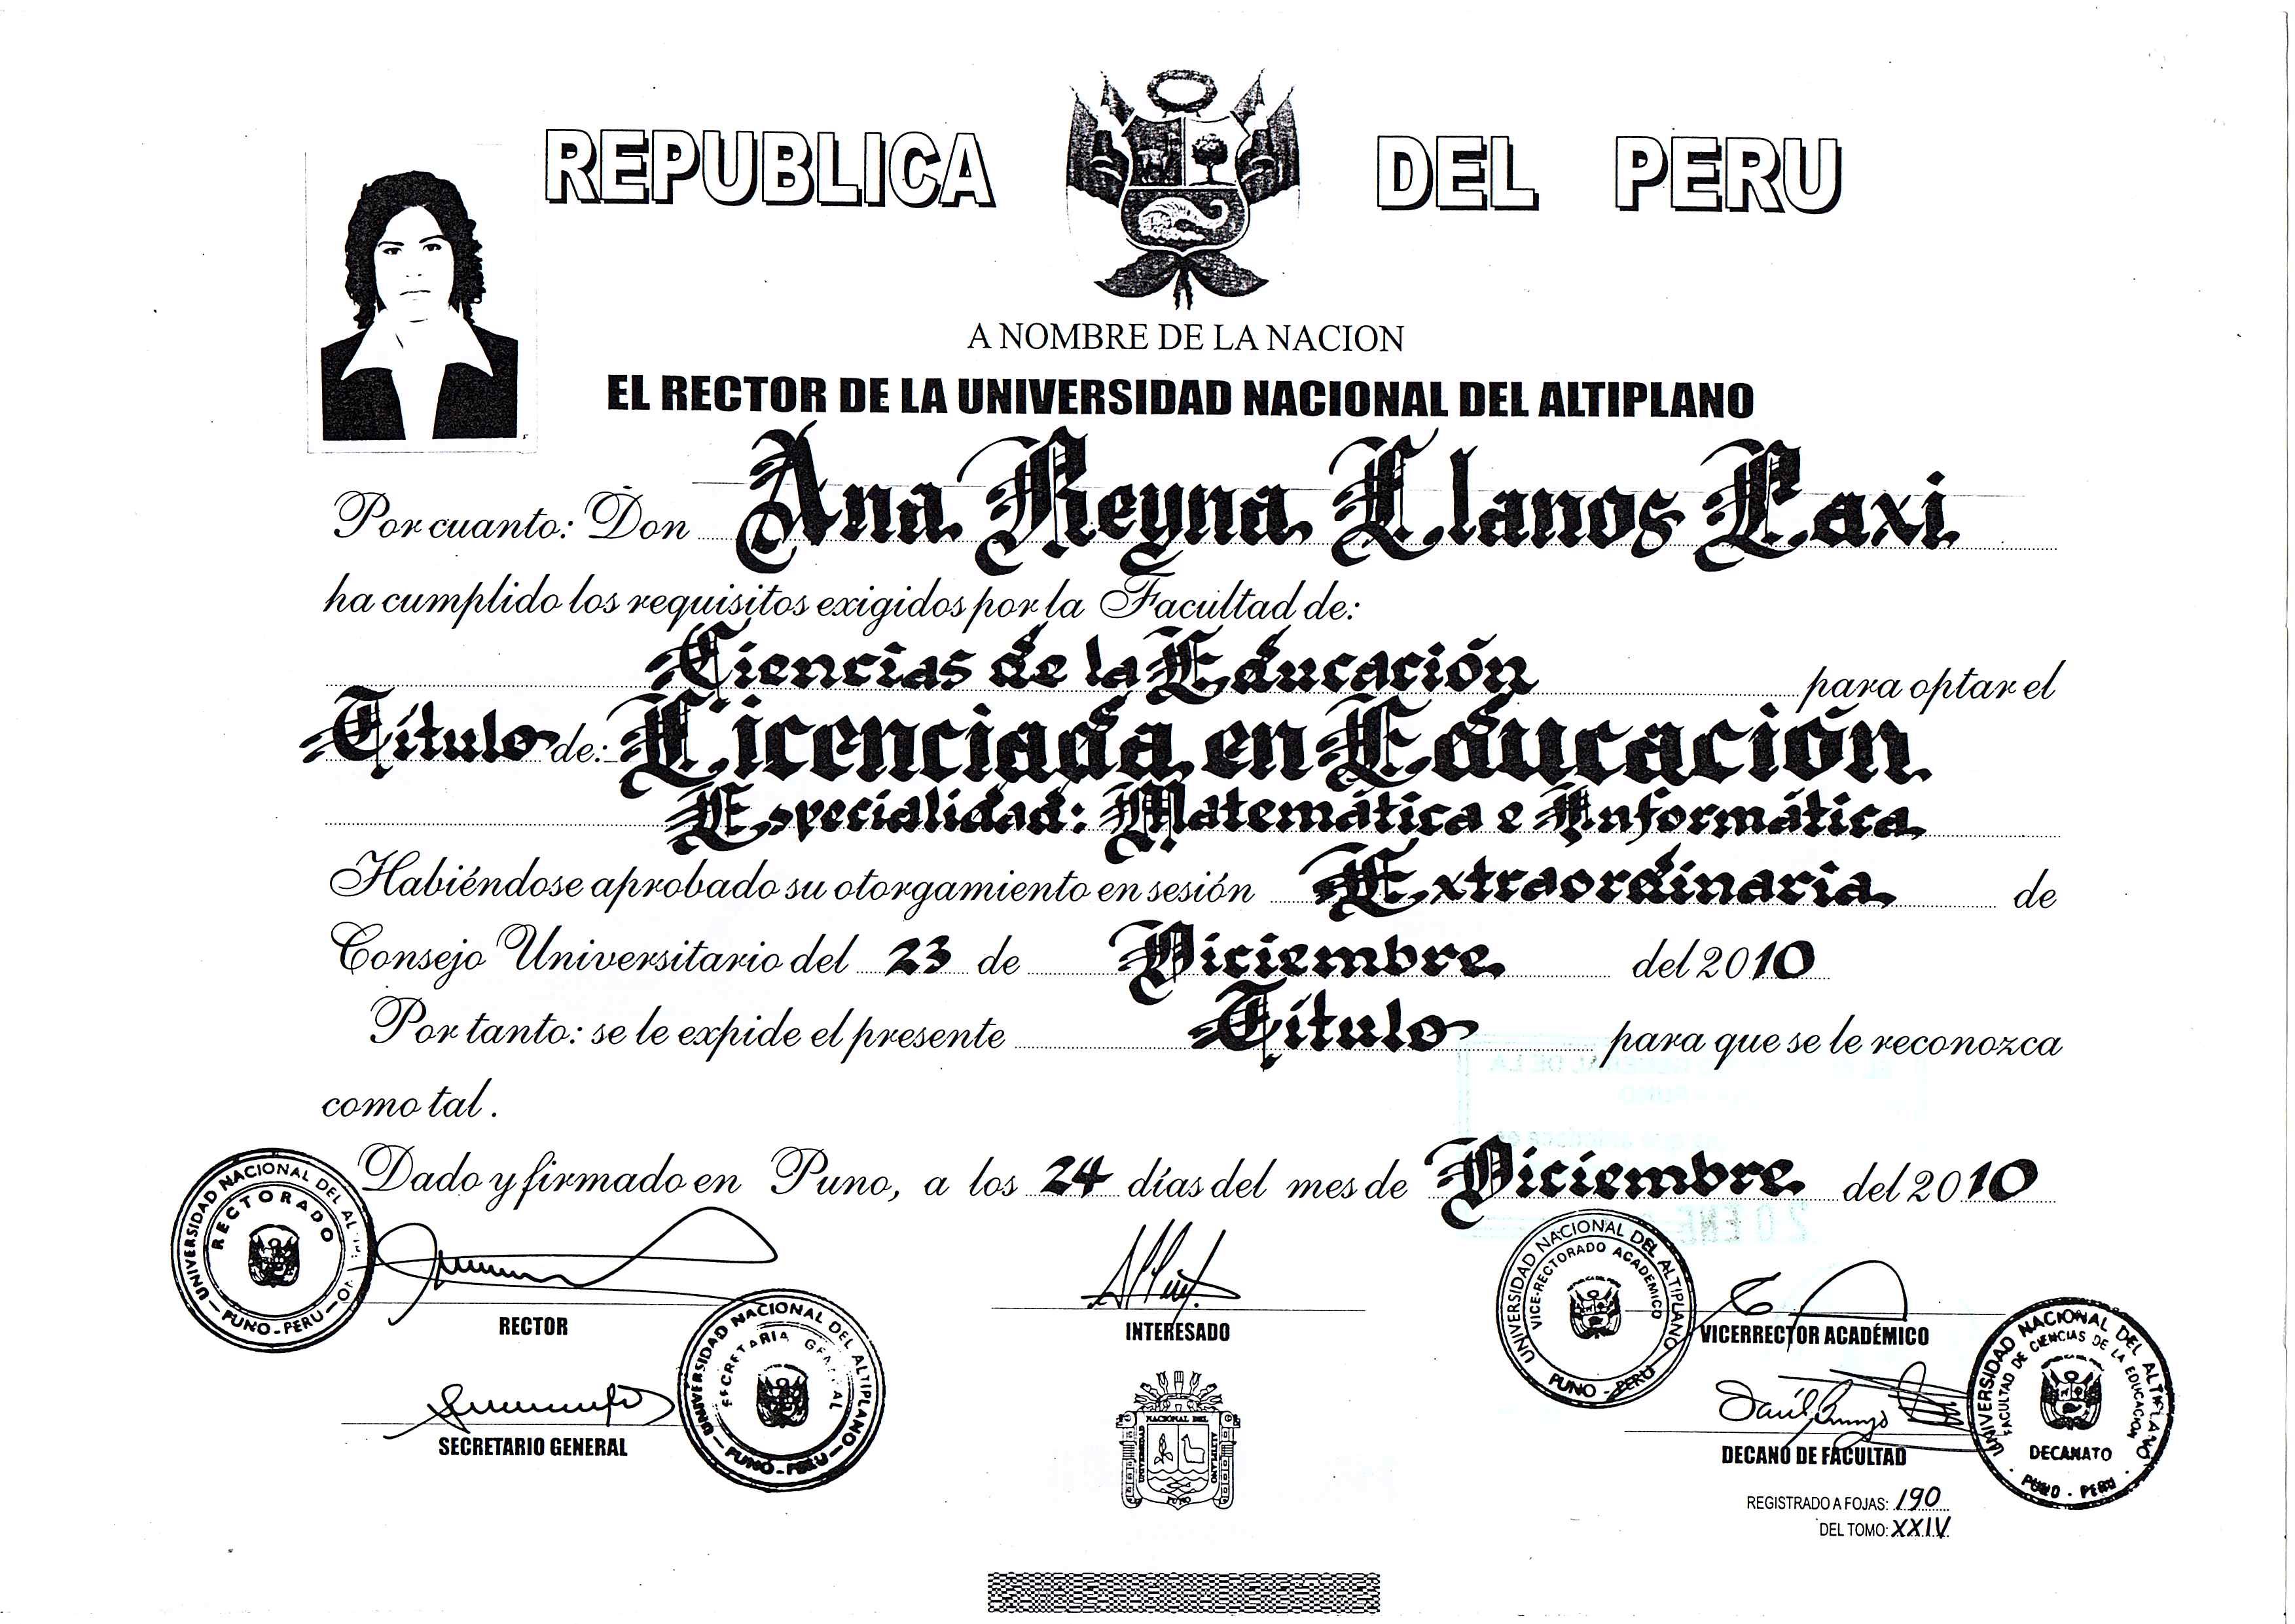 REPUBLICA DEL PERU
A NOMBRE DE LA NACION
EL RECTOR DE LA UNIVERSIDAD NACIONAL DEL ALTIPLANO
Por cuanto: Don Ana Reyna Llanos Paxi
ha cumplido los requisitos exigidos por la Facultad de:
Ciencias de la Educación para optar el
Título de: Licenciada en Educación
Especialidad: Matemática e Informática
Habiéndose aprobado su otorgamiento en sesión Extraordinaria de
Consejo Universitario del 23 de Diciembre del 2010
Por tanto: se le expide el presente Título para que se le reconozca
como tal.
Dado y firmado en Puno, a los 24 días del mes de Diciembre del 2010
UNIVERSIDAD NACIONAL DEL ALTIPLANO
RECTORADO
PUNO - PERU
RECTOR
INTERESADO
UNIVERSIDAD NACIONAL DEL ALTIPLANO
VICE-RECTORADO ACADEMICO
PUNO - PERU
VICERRECTOR ACADÉMICO
UNIVERSIDAD NACIONAL DEL ALTIPLANO
SECRETARIA GENERAL
PUNO - PERU
SECRETARIO GENERAL
UNIVERSIDAD NACIONAL DEL ALTIPLANO
PUNO
UNIVERSIDAD NACIONAL DEL ALTIPLANO
FACULTAD DE CIENCIAS DE LA EDUCACION
DECANATO
PUNO - PERU
DECANO DE FACULTAD
REGISTRADO A FOJAS: 190
DEL TOMO: XXIV